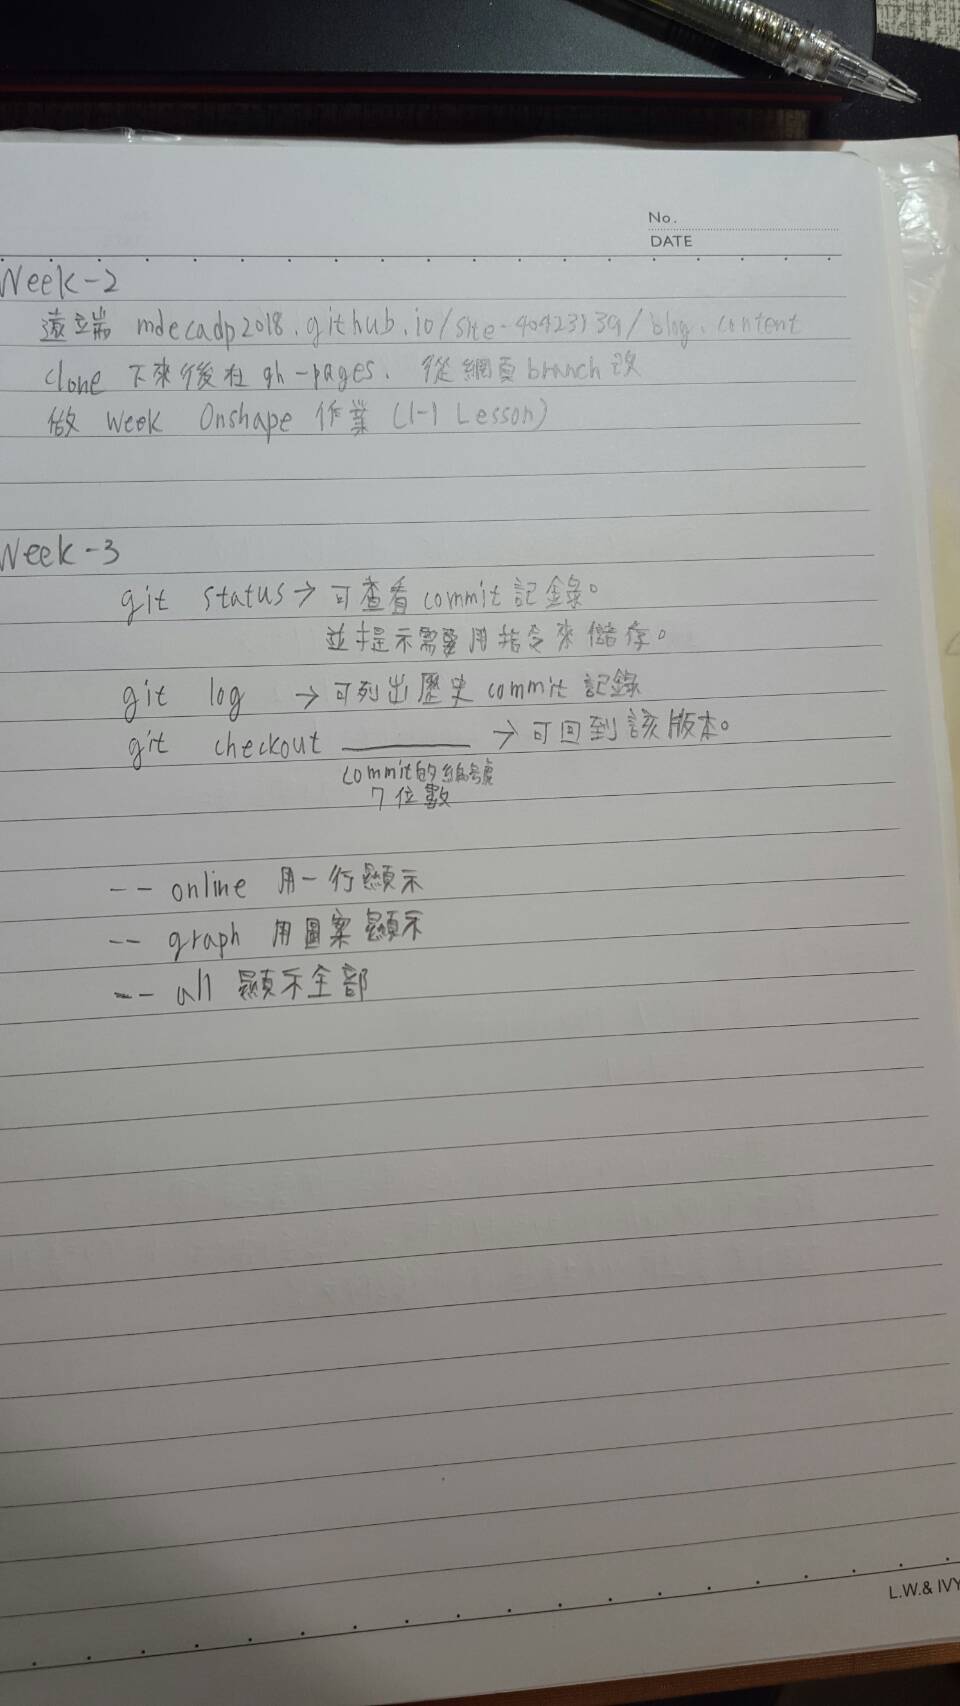 No.
DATE
Week-2
遠端 mdecadp2018.github.io/site-40423139/blog.content
clone 下來後在 gh-pages. 從網頁branch改
做 Week Onshape 作業 (1-1 Lesson)
Week-3
git status → 可查看commit記錄。
並提示需要用指令來儲存。
git log → 可列出歷史commit記錄
git checkout ________ → 可回到該版本。
commit的編號
7位數
-- online 用一行顯示
-- graph 用圖案顯示
-- all 顯示全部
L.W.& IVY